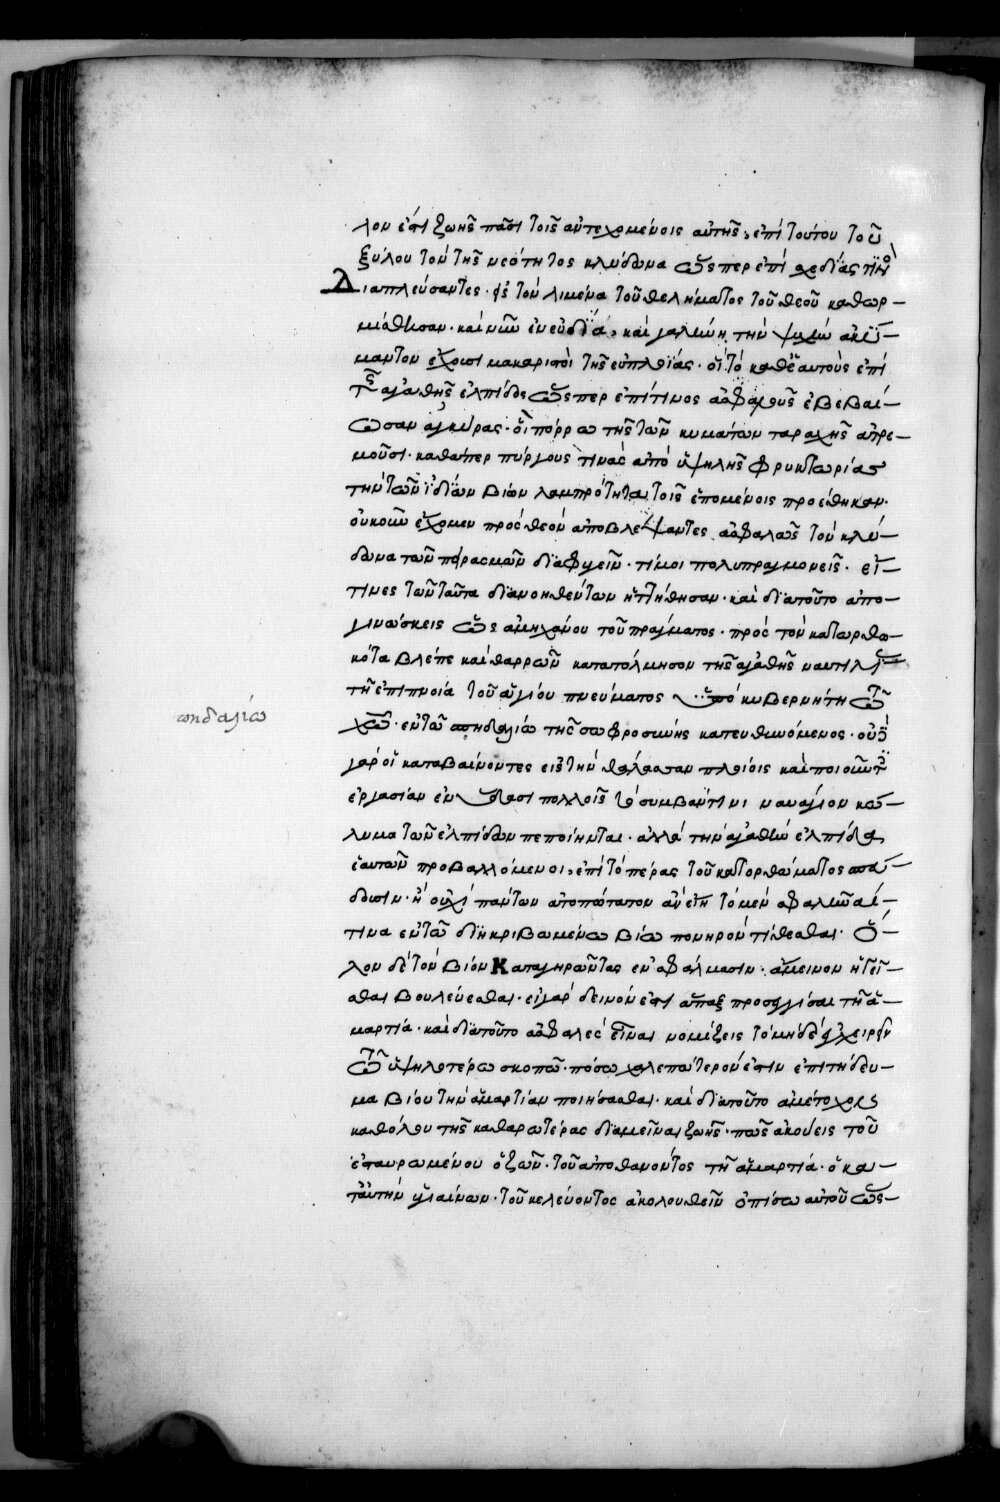 λον ἐστι ζωῆς πᾶσι τοῖς ἀντεχομένοις αὐτῆς, ἐπὶ τούτου τοῦ
ξύλου τὸν τῆς νεότητος κλύδωνα ὥςπερ ἐπὶ σχεδίας τινὸς
Διαπλεύσαντες· εἰς τὸν λιμένα τοῦ θελήματος τοῦ θεοῦ καθωρ-
μίσθησαν· καὶ νῦν ἐν εὐδία, καὶ γαλήνη τὴν ψυχὴν ἀκύ-
μαντον ἔχουσι μακαριστοὶ τῆς εὐπλοίας· οἳ τὸ καθ' ἑαυτοὺς ἐπὶ
τῆς ἀγαθῆς ἐλπίδος ὥςπερ ἐπί τινος ἀσφαλοῦς ἐβεβαί-
ωσαν ἀγκύρας· οἳ πόρρω τῆς τῶν κυμάτων ταραχῆς ἀτρε-
μοῦσι· καθάπερ πύργους τινὰς ἀπὸ ὑψηλῆς φρυκτωρίας
τὴν τῶν ἰδίων βίων λαμπρότητα τοῖς ἑπομένοις προέθηκαν·
οὐκοῦν ἔχομεν πρὸς θεὸν ἀποβλέψαντες ἀσφαλῶς τὸν κλύ-
δωνα τῶν πειρασμῶν διαφυγεῖν· τί μοι πολυπραγμονεῖς· εἴ-
τινες τῶν ταῦτα διανοηθέντων ἡττήθησαν· καὶ διατοῦτο ἀπο-
γινώσκεις ὡς ἀμηχάνου τοῦ πράγματος· πρὸς τὸν κατωρθω-
κότα βλέπε καὶ θαρρῶν κατατόλμησον τῆς ἀγαθῆς ναυτιλίας
τῇ ἐπιπνοία τοῦ ἁγίου πνεύματος ὑπὸ κυβερνήτη τῶ
χῶ· ἐν τῶ πηδαλίω τῆς σωφροσύνης κατευθυνόμενος· οὐδὲ
πηδαλίω
γὰρ οἱ καταβαίνοντες εἰς τὴν θάλασσαν πλοίοις καὶ ποιοῦντες
ἐργασίαν ἐν ὕδασι πολλοῖς τὸ συμβάν τινι ναυάγιον κώ-
λυμα τῶν ἐλπίδων πεποίηνται· ἀλλὰ τὴν ἀγαθὴν ἐλπίδα
ἑαυτῶν προβαλλόμενοι, ἐπὶ τὸ πέρας τοῦ κατορθώματος σπεύ-
δουσιν· ἢ οὐχὶ πάντων ἀτοπώτατον ἂν εἴη τὸ μὲν σφαλῶναί
τινα ἐν τῶ διηκριβωμένω βίω πονηρὸν τίθεσθαι· ὅ-
λον δὲ τὸν βίον Καταγηρῶντας ἐν σφάλμασιν· ἄμεινον ἡγεῖ-
σθαι βουλεύεσθαι· εἰ γὰρ δεινόν ἐστι ἅπαξ προσεγγίσαι τῆ ἁ-
μαρτία· καὶ διατοῦτο ἀσφαλὲς εἶναι νομίζεις τὸ μηδὲ ἐγχειρεῖν
τῶ ὑψηλοτέρω σκοπῶ· πόσω χαλεπώτερόν ἐστιν ἐπιτήδευ-
μα βίου τὴν ἁμαρτίαν ποιήσασθαι· καὶ διατοῦτο ἀμέτοχος
καθόλου τῆς καθαρωτέρας διαμεῖναι ζωῆς· πῶς ἀκούεις τοῦ
ἐσταυρωμένου ὁ ζῶν· τοῦ ἀποθανόντος τῆ ἁμαρτία· ὁ κα-
ταύτην ὑγιαίνων· τοῦ κελεύοντος ἀκολουθεῖν ὀπίσω αὐτοῦ ὡς-